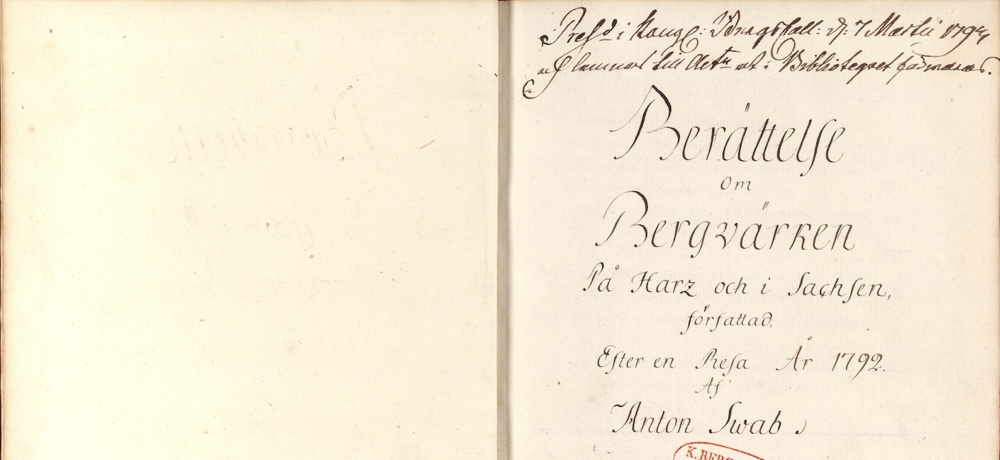 Pres.d i Kongl: Bergskoll: d: 7 Martii 1794
och lemnas till Act: at i Biblioteqvet förvaras.
Berättelse
om
Bergvärken
På Harz och i Sachsen,
författad,
Efter en Resa År 1792.
Af
Anton Swab
K. BERG